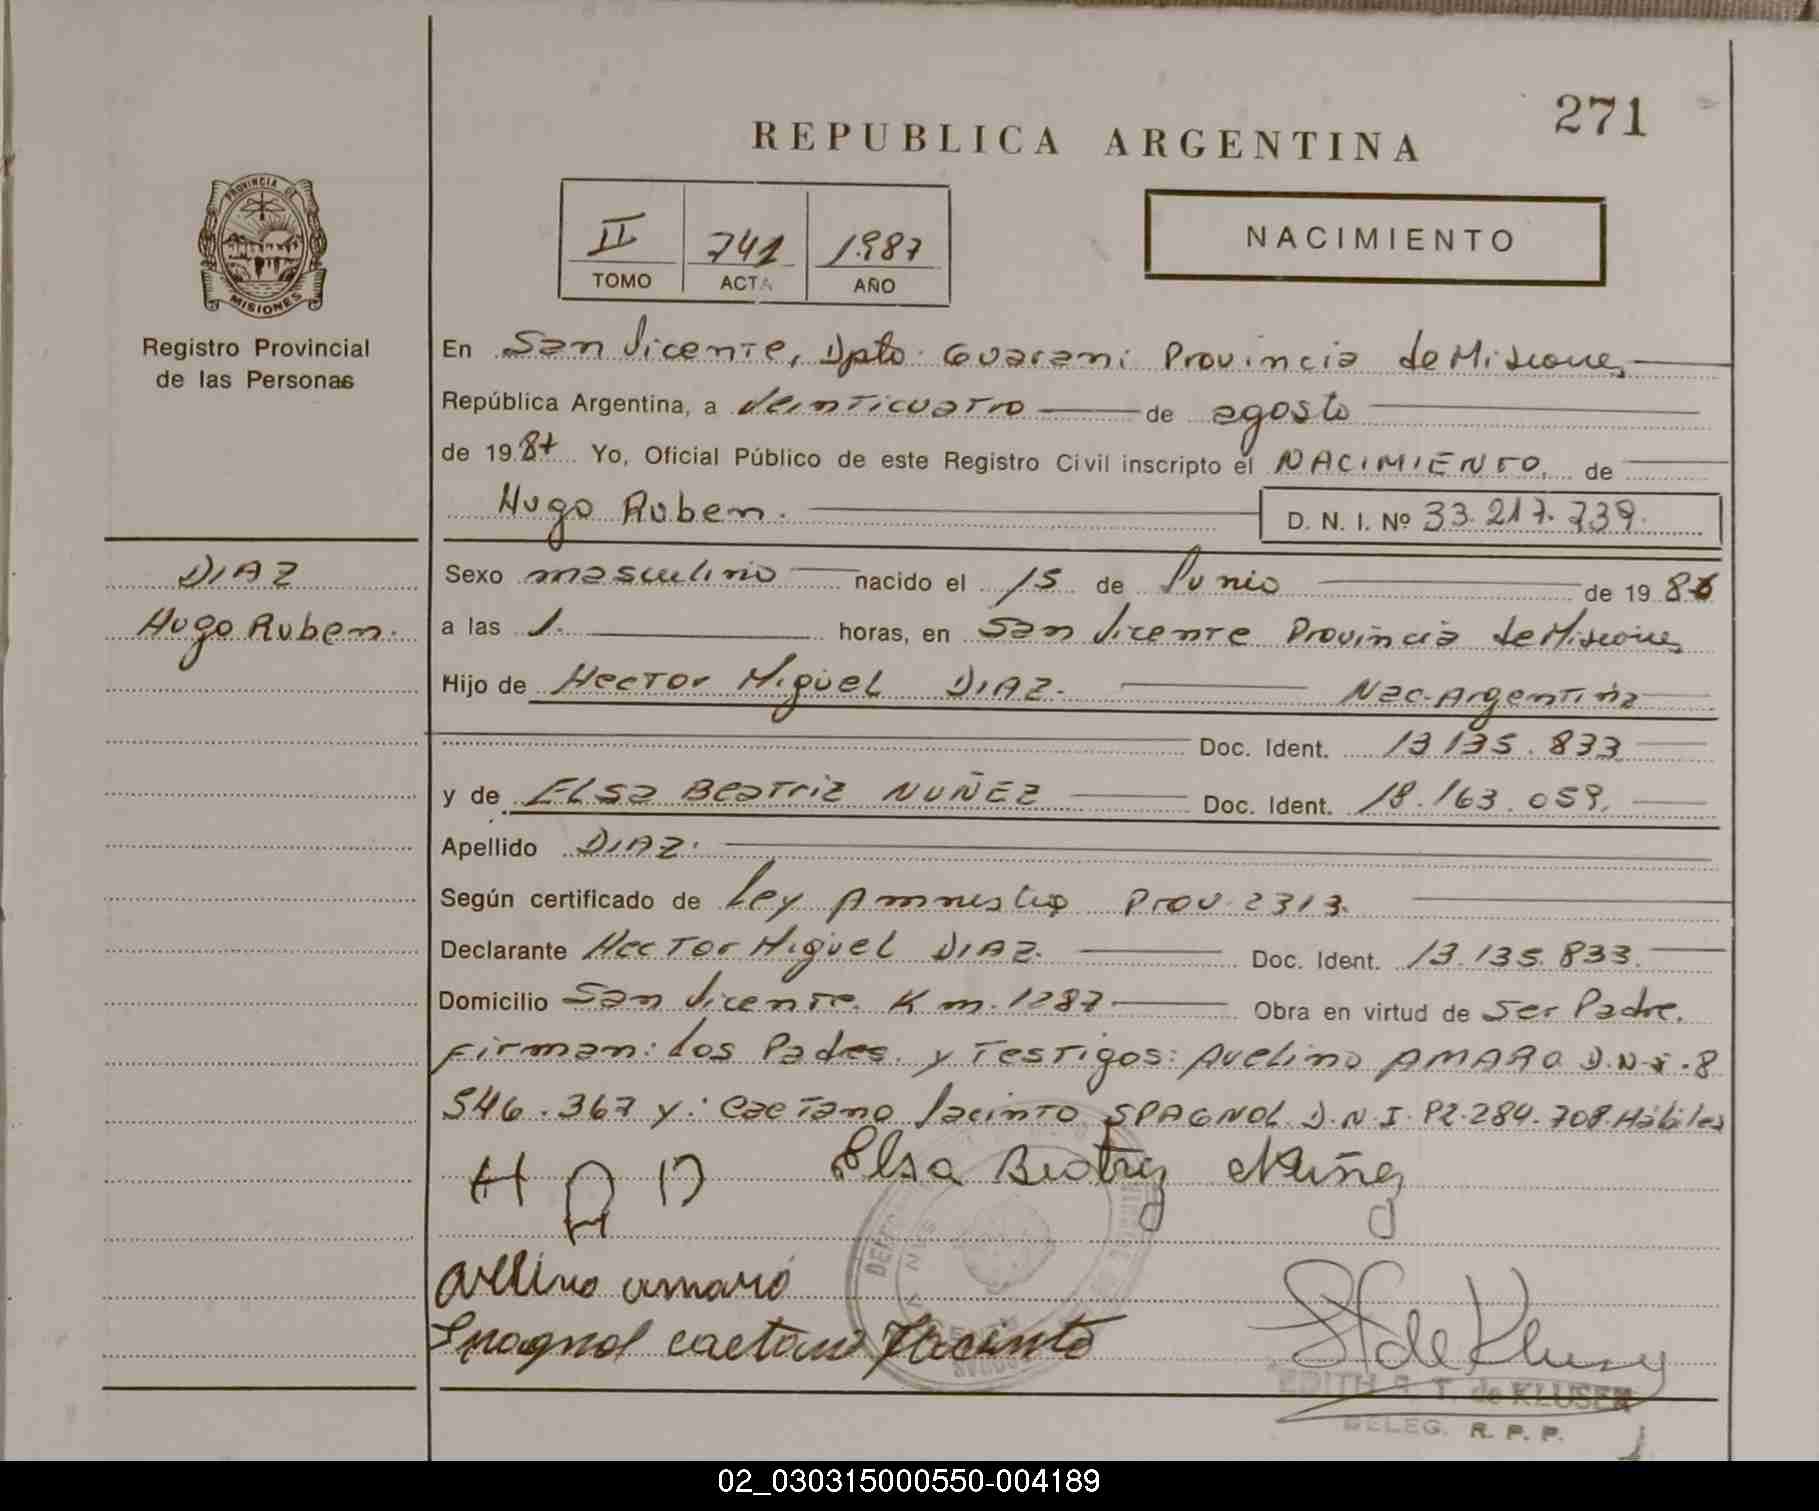 271
REPUBLICA ARGENTINA
PROVINCIA DE
MISIONES
Registro Provincial
de las Personas
II 741 1987
TOMO ACTA AÑO
NACIMIENTO
En San Vicente, Dpto. Guarani Provincia de Misiones
República Argentina, a Veinticuatro de agosto
de 1987 Yo, Oficial Público de este Registro Civil inscripto el NACIMIENTO. de
Hugo Ruben. D. N. I. Nº 33.217.739.
DIAZ
Hugo Ruben.
Sexo masculino nacido el 15 de Junio de 1986
a las 1. horas, en San Vicente Provincia de Misiones
Hijo de Hector Miguel DIAZ. Nac. Argentina
Doc. Ident. 13.135.833
y de Elsa Beatriz NUÑEZ Doc. Ident. 18.163.059.
Apellido DIAZ.
Según certificado de Ley Amnestia Prov. 2313.
Declarante Hector Miguel DIAZ. Doc. Ident. 13.135.833.
Domicilio San Vicente. Km. 1287 Obra en virtud de Ser Padre.
Firman: Los Padres. y Testigos: Avelino AMARO D.N.I. 8
546.367 y: Caetano Jacinto SPAGNOL D.N.I. 92.284.708. Hábiles
H R D Elsa Beatriz Nuñez
avelino amaro
Spagnol caetano Jacinto
EDITH F. T. de KLUSEN
DELEG. R. P. P.
02_030315000550-004189